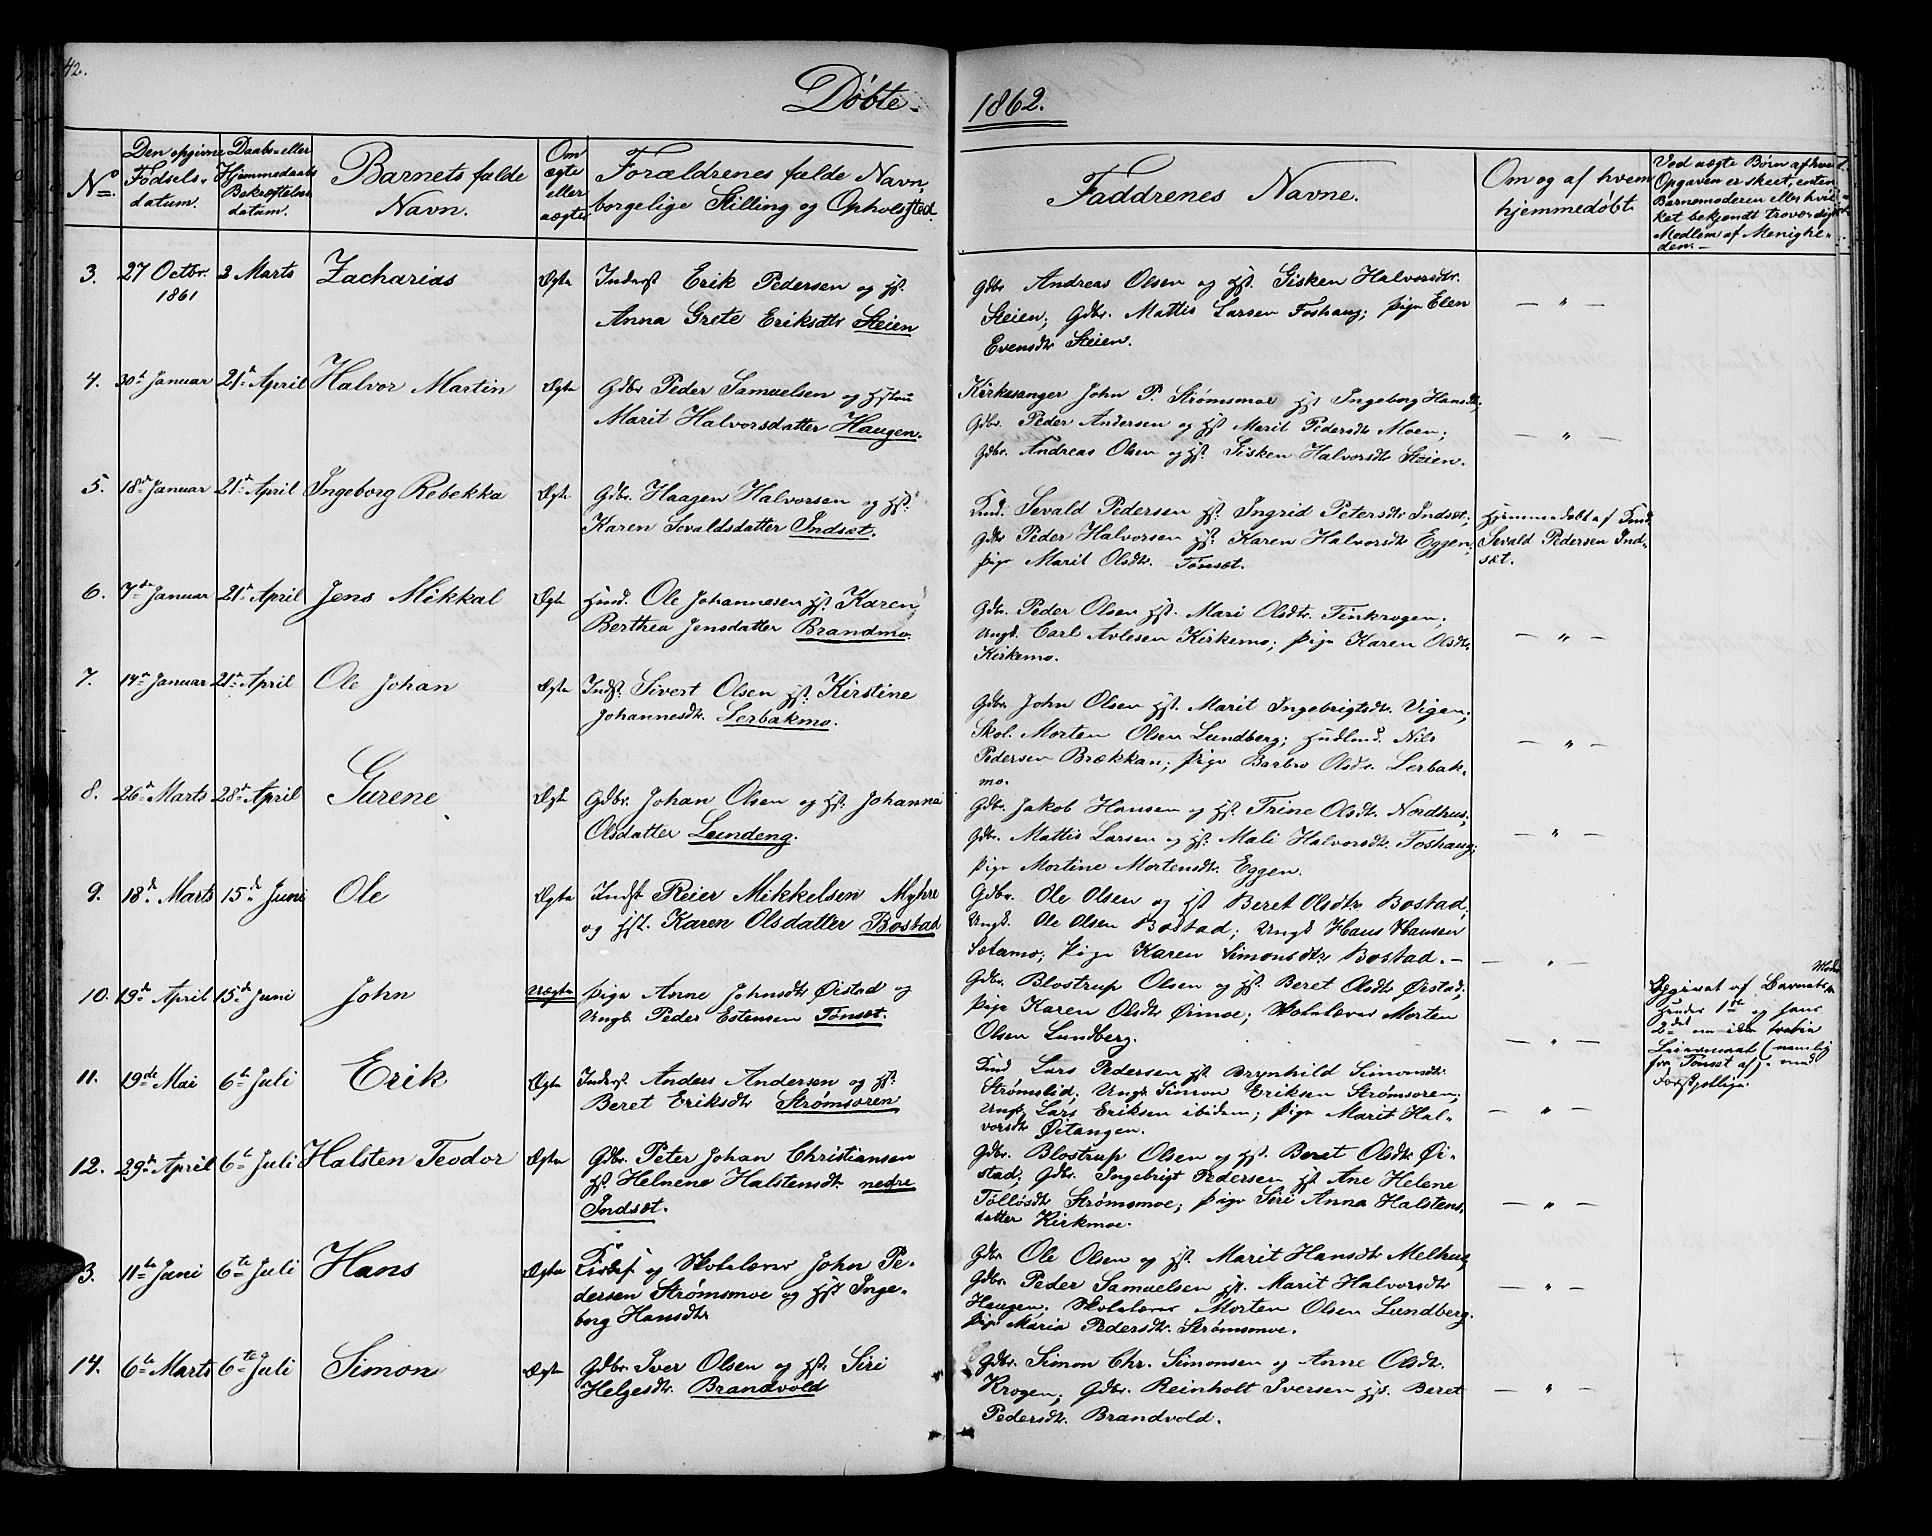 42.
Døbte
1862.
No.
Den opgivne Fødsels- datum.
Daabs- eller Hjemmedaabs Bekræftelses datum.
Barnets fulde Navn.
Om ægte eller uægte
Forældrenes fulde Navn, borgelige Stilling og Opholdsted.
Faddrenes Navne.
Om og af hvem hjemmedøbt.
Ved uægte Børn af hvem Opgaven er skeet, enten Barnemoderen eller hvilket bekjendt troværdigt Medlem af Menigheden.
3. 27 Octbr. 2 Marts Zacharias Ægte Inderst Erik Pedersen og Hst.
1861
Anna Grete Eriksdtr Steien
Gdbr Andreas Olsen og Hst. Gisken Halvorsdtr.
Steien; Gdbr. Mattis Larsen Foshaug; Pige Elen
Evensdtr Steien.
— " —
4. 30te Januar 21de April Halvor Martin Ægte Gdbr Peder Samuelsen og Hstru
Marit Halvorsdatter Haugen.
Kirkesanger John P. Strømsmoe Hst Ingeborg Hansdtr;
Gdbr. Peder Andersen og Hst Marit Pedersdtr Moen;
Gdbr. Andreas Olsen og Hst. Gisken Halvorsdtr Steien.
— " —
5. 18de Januar 21de April Ingeborg Rebekka Ægte Gdbr. Haagen Halvorsen og Hst.
Karen Sevaldsdatter Indset.
Sevald Pedersen Hst. Ingrid Petersdtr Indset;
Gdbr Peder Halvorsen Hst. Karen Halvorsdtr Eggen;
Pige Marit Olsdtr. Tønset.
Hjemmedøbt af
Sevald Pedersen Ind-
set.
6. 7de Januar 21de April Jens Mikkal Ægte Ole Johannesen Hst. Karen
Berthea Jensdatter Brandmo.
Gdbr. Peder Olsen Hst. Mari Olsdtr. Finkrogen;
Ungk. Carl Avlesen Kirkemo; Pige Karen Olsdtr.
Kirkemo.
— " —
7. 14de Januar 21de April Ole Johan Ægte Indst. Sivert Olsen Hst. Kirstine
Johannesdtr. Lerbakmo.
Gdbr. John Olsen Hst. Marit Ingebrigtsdtr. Vigen;
Skol. Morten Olsen Lundberg; Nils
Pedersen Brækkan; Pige Barbro Olsdr. Lerbak-
mo.
— " —
8. 26de Marts 28de April Gurene Ægte Gdbr. Johan Olsen og Hst. Johanna
Olsdatter Lundeng.
Gdbr. Jakob Hansen og Hst. Trine Olsdtr. Nordhus;
Gdbr. Mattis Larsen og Hst. Mali Halvorsdtr. Foshaug;
Pige Mortine Mortensdtr. Eggen.
— " —
9. 18de Marts 15de Juni Ole Ægte Indst Reier Mikkelsen Myhre
og Hst. Karen Olsdatter Bostad
Gdbr. Ole Olsen og Hst Beret Olsdtr Bostad;
Ungk. Ole Olsen Bostad; Ungk Hans Hansen
Solamo; Pige Karen Simonsdtr Bostad. —
— " —
10. 19de April 15de Juni John Uægte Pige Anne Johnsdtr Øistad og
Ungk. Peder Estensen Tønset.
Gdbr. Blostrup Olsen og Hst. Beret Olsdtr Øistad;
Pige Karen Olsdtr Øimoe; Skolelærer Morten
Olsen Lundberg.
— " —
Begivet af Barnets Moder
2det
11. 19de Mai 6te Juli Erik Ægte Inderst Anders Andersen og Hst.
Beret Eriksdtr Strømsøren
Lars Pedersen Hst Brynhild Simonsdtr
Strømslid; Ungk Simon Eriksen Strømsøren;
Ungk. Lars Eriksen ibidem; Pige Marit Hal-
vorsdtr Øitangen.
— " —
12. 29de April 6te Juli Halsten Teodor Ægte Gdbr. Peter Johan Christiansen
Hst. Helnene Halstensdtr. nedre
Indset.
Gdbr. Blostrup Olsen og Hst. Beret Olsdtr Øi-
stad; Gdbr. Ingebrigt Pedersen Hst Ane Helene
Tolløsdtr Strømsmoe; Pige Siri Anna Halstens
datter Kirkmoe.
— " —
13. 11te Juni 6te Juli Hans Ægte og Skolelærer John Pe-
dersen Strømsmoe og Hst Inge-
borg Hansdtr
Gdbr Ole Olsen og Hst. Marit Hansdtr Melhus;
Gdbr. Peder Samuelsen Hst. Marit Halvorsdtr
Haugen; Skolelærer Morten Olsen Lundberg.
Pige Maria Pedersdtr. Strømsmoe.
— " —
14. 6te Marts 6te Juli Simon Ægte Gdbr. Iver Olsen og Hst. Siri
Helgesdtr. Brandvold
Gdbr. Simon Chr. Simonsen og Anne Olsdtr.
Krogen; Gdbr. Reinholt Iversen Hst. Beret
Pedersdtr. Brandvold.
— " —